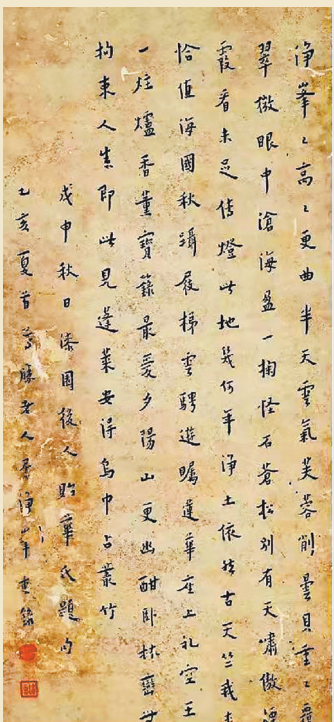 净峯〻高〻更曲半天雲氣芙蓉削曇貝重〻
翠微眼中滄海盈一掬怪石蒼松別有天嘯傲
霞看未足傳燈此地幾何年淨土依然古天竺我
恰值海國秋躡屐梯雲騁遊矚蓮華座上礼空王
一炷爐香薰寶籙最愛夕陽山更幽酣卧林巒
拘束人生即此見蓬萊安得烏巾占叢竹
戊申秋日漆園後人貽華氏題句
乙亥夏首尊勝老人居淨山年書